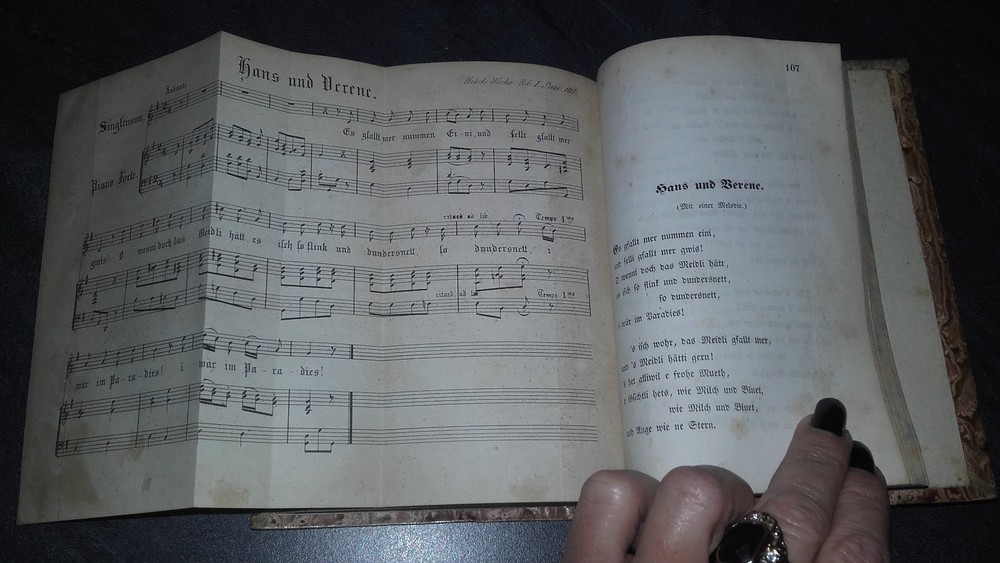 Hans und Verene.
Hebels Werke. Bd. I. Seite 107.
Andante
Singstimme.
Es gfallt mer nummen Ei-ni, und selli gfallt mer
Piano Forte.
ritard. ad lib. Tempo 1mo
gwis! O wenni doch das Meidli hätt, es isch so flink und dundersnett, so dundersnett, i
ritard. ad lib. Tempo 1mo
wär im Pa-ra-dies! i wär im Pa-ra-dies!
107
Hans und Verene.
(Mit einer Melodie.)
Es gfallt mer nummen eini,
und selli gfallt mer gwis!
O wenni doch das Meidli hätt,
es isch so flink und dundersnett,
so dundersnett,
i wär im Paradies!
's isch wohr, das Meidli gfallt mer,
und 's Meidli hätti gern!
's het alliwil e frohe Mueth,
e Gsichtli hets, wie Milch und Bluet,
wie Milch und Bluet,
und Auge wie ne Stern.